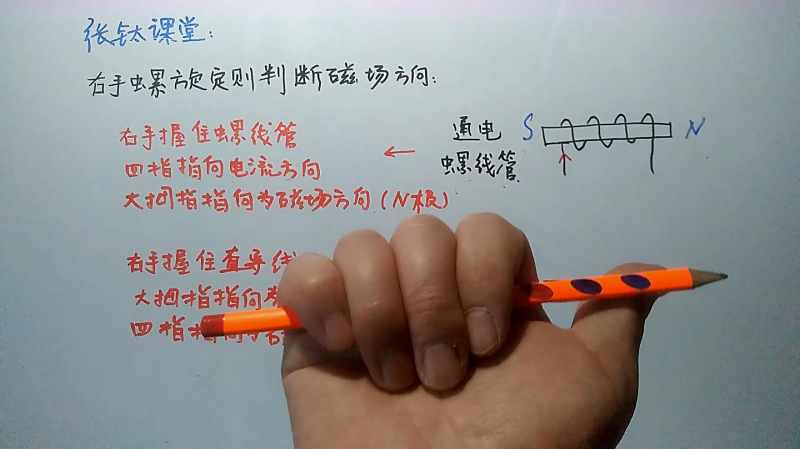 张钛课堂:
右手虫累方旋定则判断磁场方向:
右手握住螺线管
四指指向电流方向
大拇指指向为磁场方向(N极)
← 通电
螺线管
S
N
右手握住直导线
大拇指指向
四指指向为